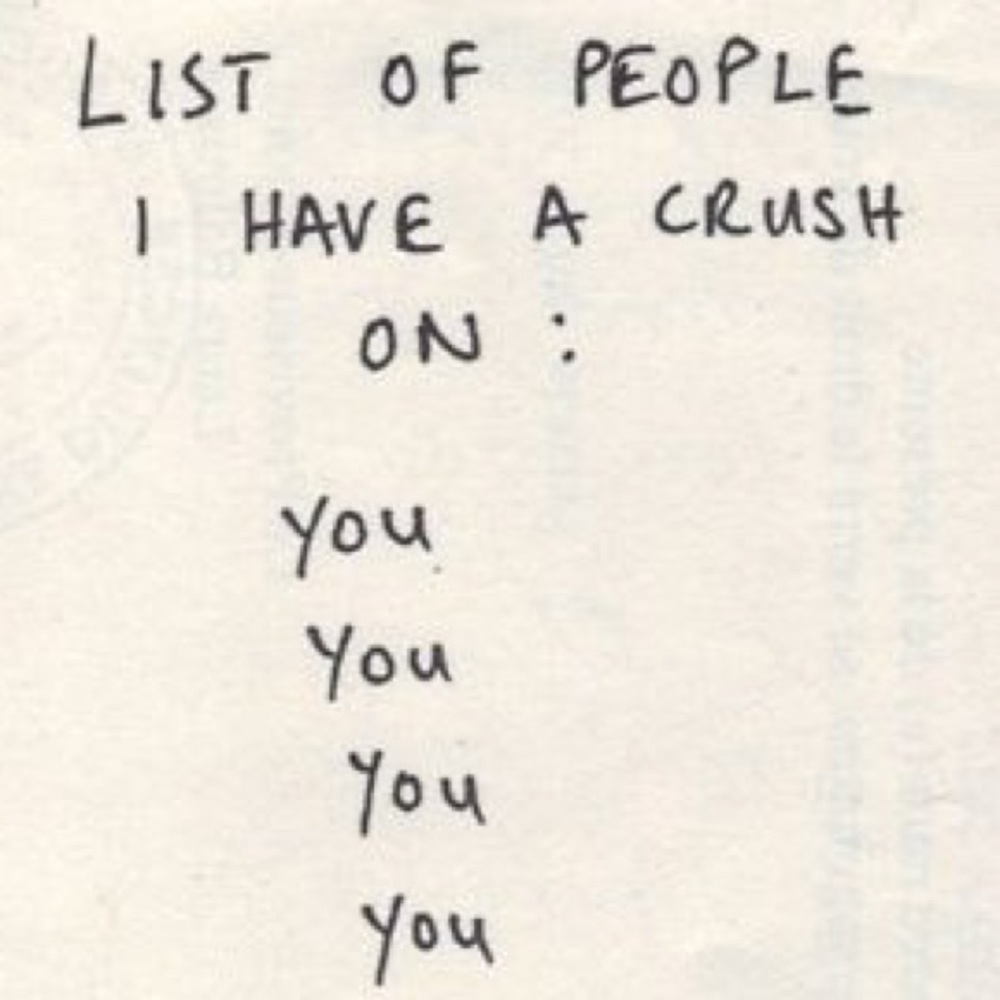 LIST OF PEOPLE
I HAVE A CRUSH
ON :
you
you
you
you